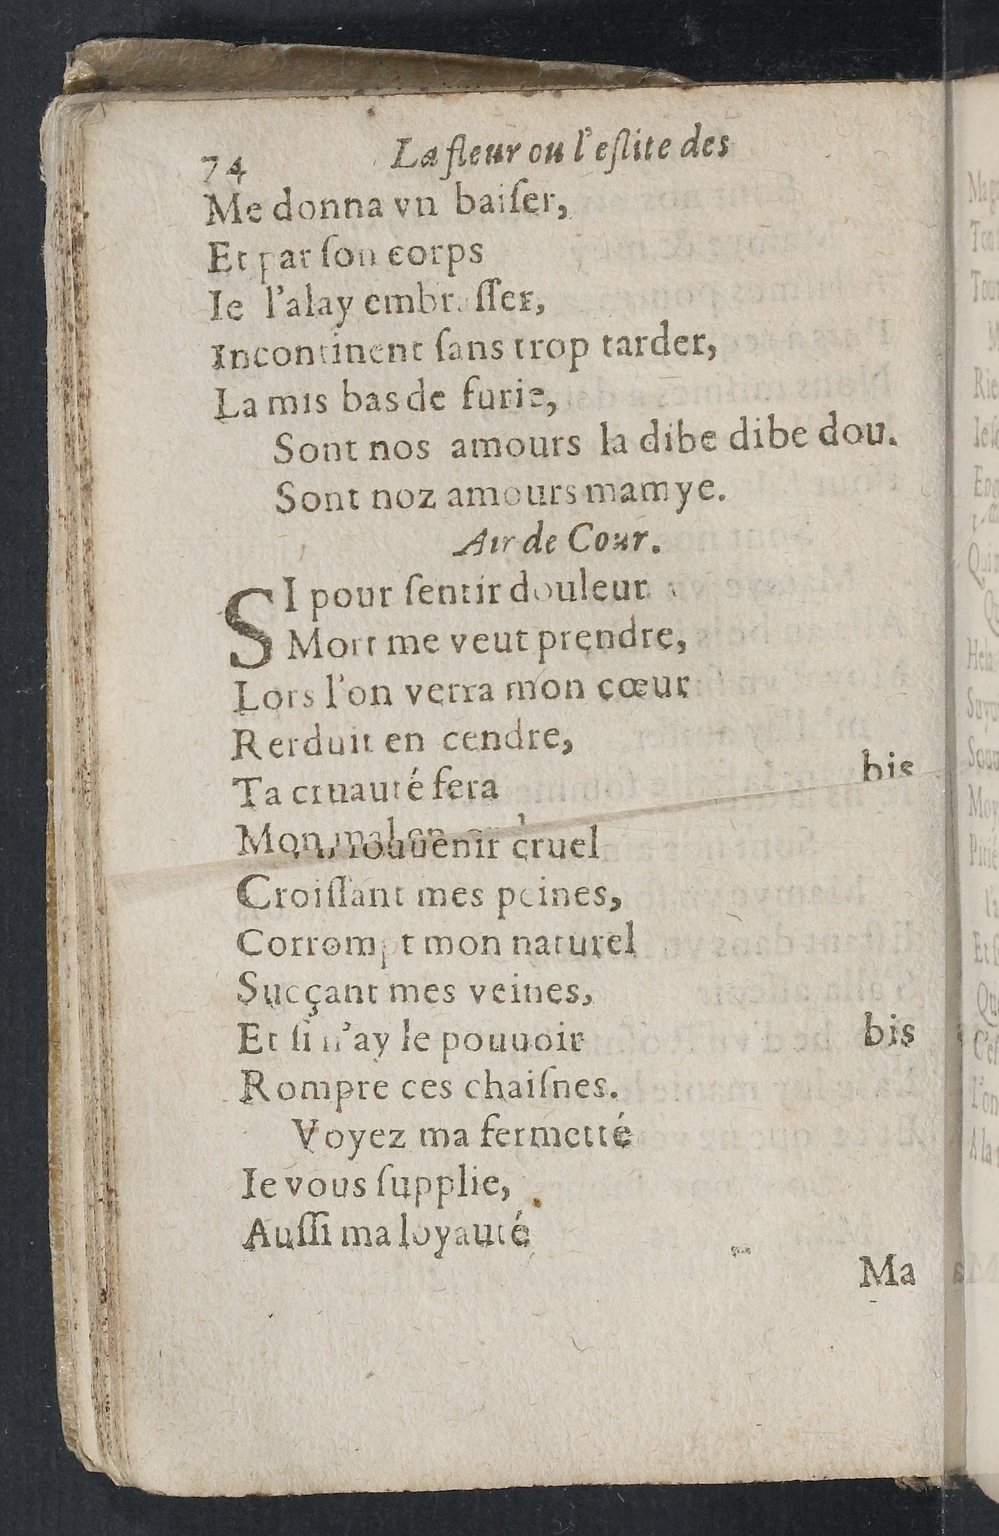 74 La fleur ou l'eſlite des
Me donna vn baiſer,
Et par ſon corps
Ie l'alay embraſſer,
Incontinent ſans trop tarder,
La mis bas de furie,
Sont nos amours la dibe dibe dou.
Sont noz amours mamye.
Air de Cour.
SI pour ſentir douleur
Mort me veut prendre,
Lors l'on verra mon cœur
Rerduit en cendre,
Ta cruauté fera bis
Mon mal
ſouuenir cruel
Croiſſant mes peines,
Corrompt mon naturel
Sucçant mes veines,
Et ſi n'ay le pouuoir bis
Rompre ces chaiſnes.
Voyez ma fermetté
Ie vous ſupplie,
Auſſi ma loyauté
Ma